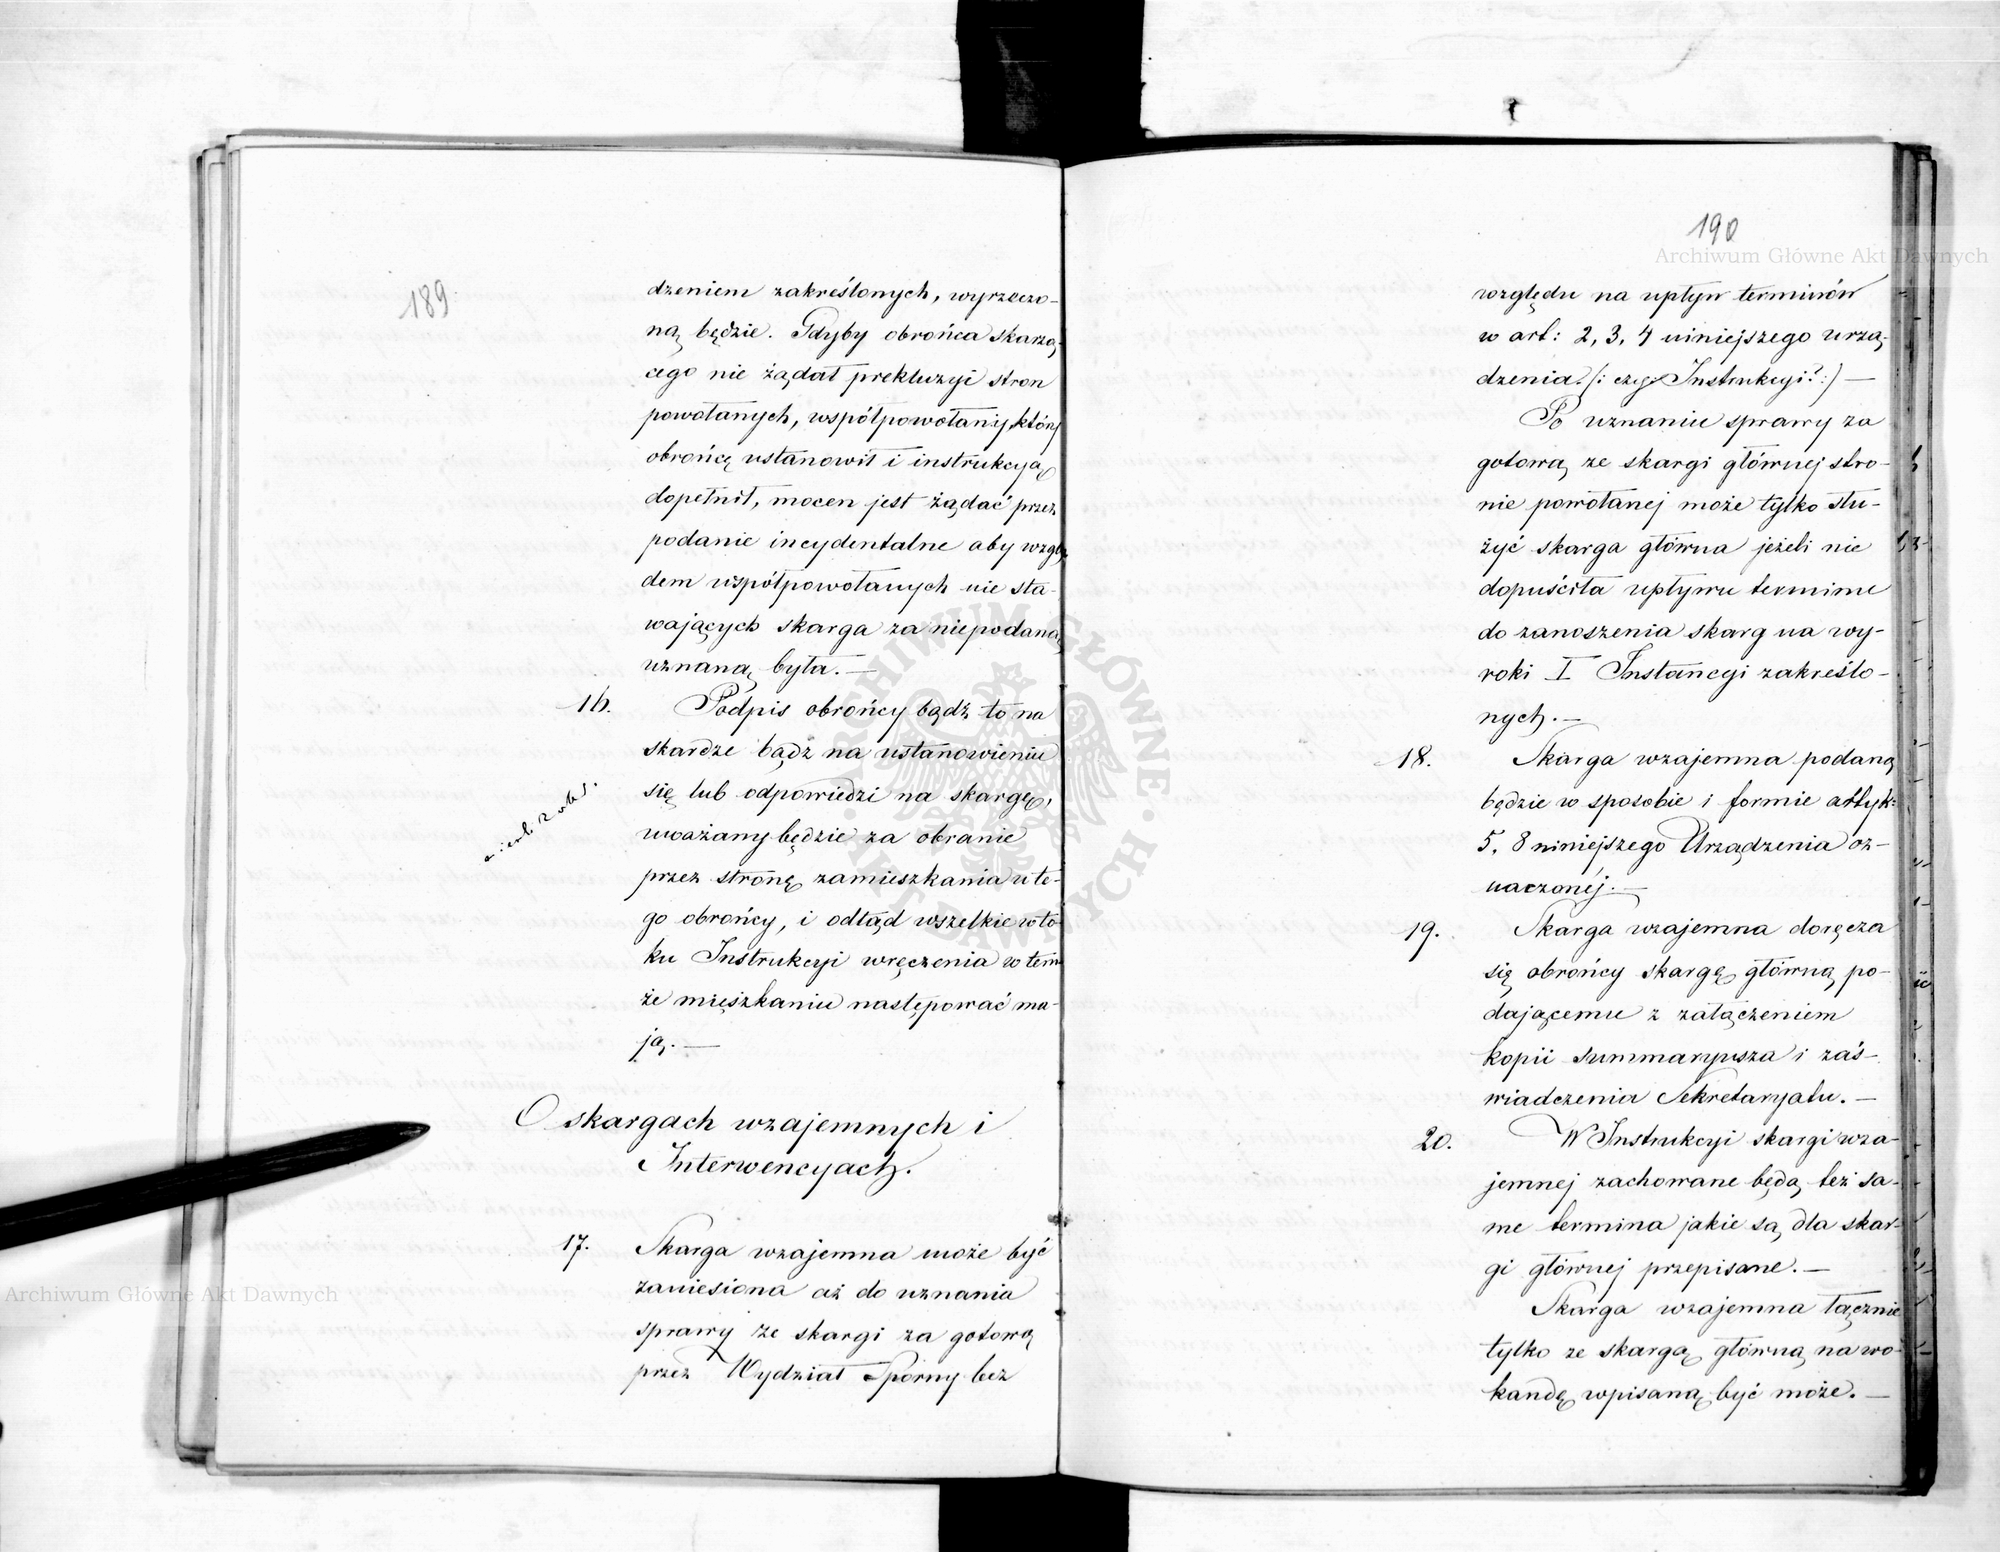 189.
dzeniem zakreślonych, wyrzeczo-
ną będzie. Gdyby obrońca skarżą-
cego nie żądał prekluzyi stron
powołanych, współpowołany, który
obrońcę ustanowił i instrukcyą
dopełnił, mocen jest żądać przez
podanie incydentalne aby wzglę
dem współpowołanych nie sta-
wających skarga za niepodaną
uznaną była. —
16. Podpis obrońcy bądź to na
skardze bądź na ustanowieniu
się lub odpowiedzi na skargę,
uważany będzie za obranie
przez stronę zamieszkania u te-
go obrońcy, i odtąd wszelkie w to-
ku Instrukcyi wręczenia w tem
że mieszkaniu następować ma-
ją. —
O skargach wzajemnych i
Interwencyach.
17. Skarga wzajemna może być
zaniesiona aż do uznania
sprawy ze skargi za gotową
przez Wydział Sporny bez
190
względu na upływ terminów
w art: 2, 3, 4 niniejszego urzą-
dzenia? /: czy Instrukcyi? :/ —
Po uznaniu sprawy za
gotową ze skargi głównej stro-
nie powołanej może tylko słu-
żyć skarga główna jeżeli nie
dopuściła upływu terminu
do zanoszenia skarg na wy-
roki I Instancyi zakreślo-
nych. —
18. Skarga wzajemna podaną
będzie w sposobie i formie artyk:
5, 8 niniejszego Urządzenia oz-
naczonéj. —
19. Skarga wzajemna doręcza
się obrońcy skargę główną po-
dającemu z załączeniem
kopii Summaryusza i zaś-
wiadczenia Sekretaryatu. —
20. W Instrukcyi skargi wza-
jemnej zachowane będą też sa-
me termina jakie są dla skar-
gi głównej przepisane. —
Skarga wzajemna łącznie
tylko ze skargą główną na wo-
kandę wpisaną być może. —
Archiwum Główne Akt Dawnych
Archiwum Główne Akt Dawnych
ARCHIWUM GŁÓWNE AKT DAWNYCH